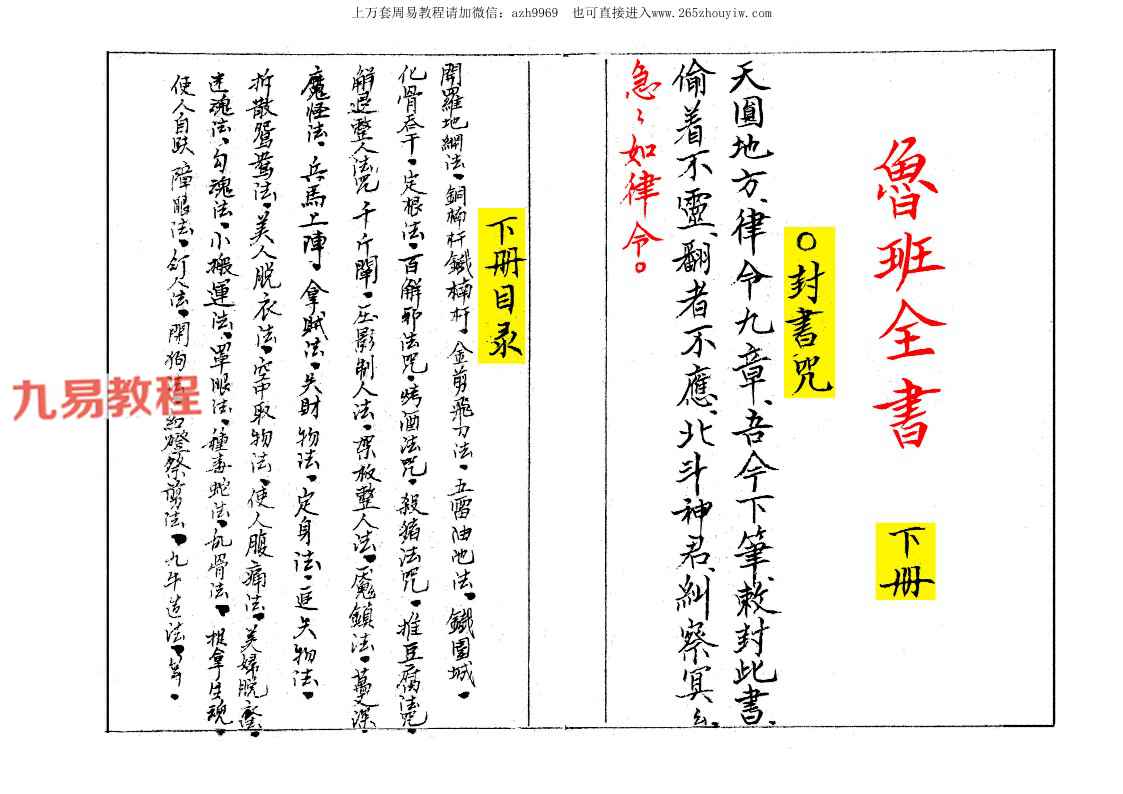 上万套周易教程请加微信：azh9969　也可直接进入www.265zhouyiw.com
魯班全書 下册
○封書咒
天圓地方、律令九章、吾今下筆、敕封此書、
偷着不靈、翻者不應、北斗神君、糾察冥幺、
急〻如律令。
下册目录
開羅地網法、銅 杆鐵楠杆、金剪飛刀法、五雷油池法、鐵圍城、
化骨吞干、定根法、百解邪法咒、烤酒法咒、殺猪法咒、推豆腐法咒、
解退整人法咒 千斤闸、压影制人法、架板整人法、魘鎮法、萬丈深、
魔怪法、兵馬上陣、拿賊法、失財物法、定身法、追失物法、
拆散鴛鴦法、美人脱衣法、空中取物法、使人腹痛法、美婦脱
迷魂法、勾魂法、小搬運法、罩眼法、種毒蛇法、乱骨法、捉拿生魂、
使人自跌 障眼法、釘人法、閉狗法、紅燈祭剪法、九牛造法、等、
九易教程